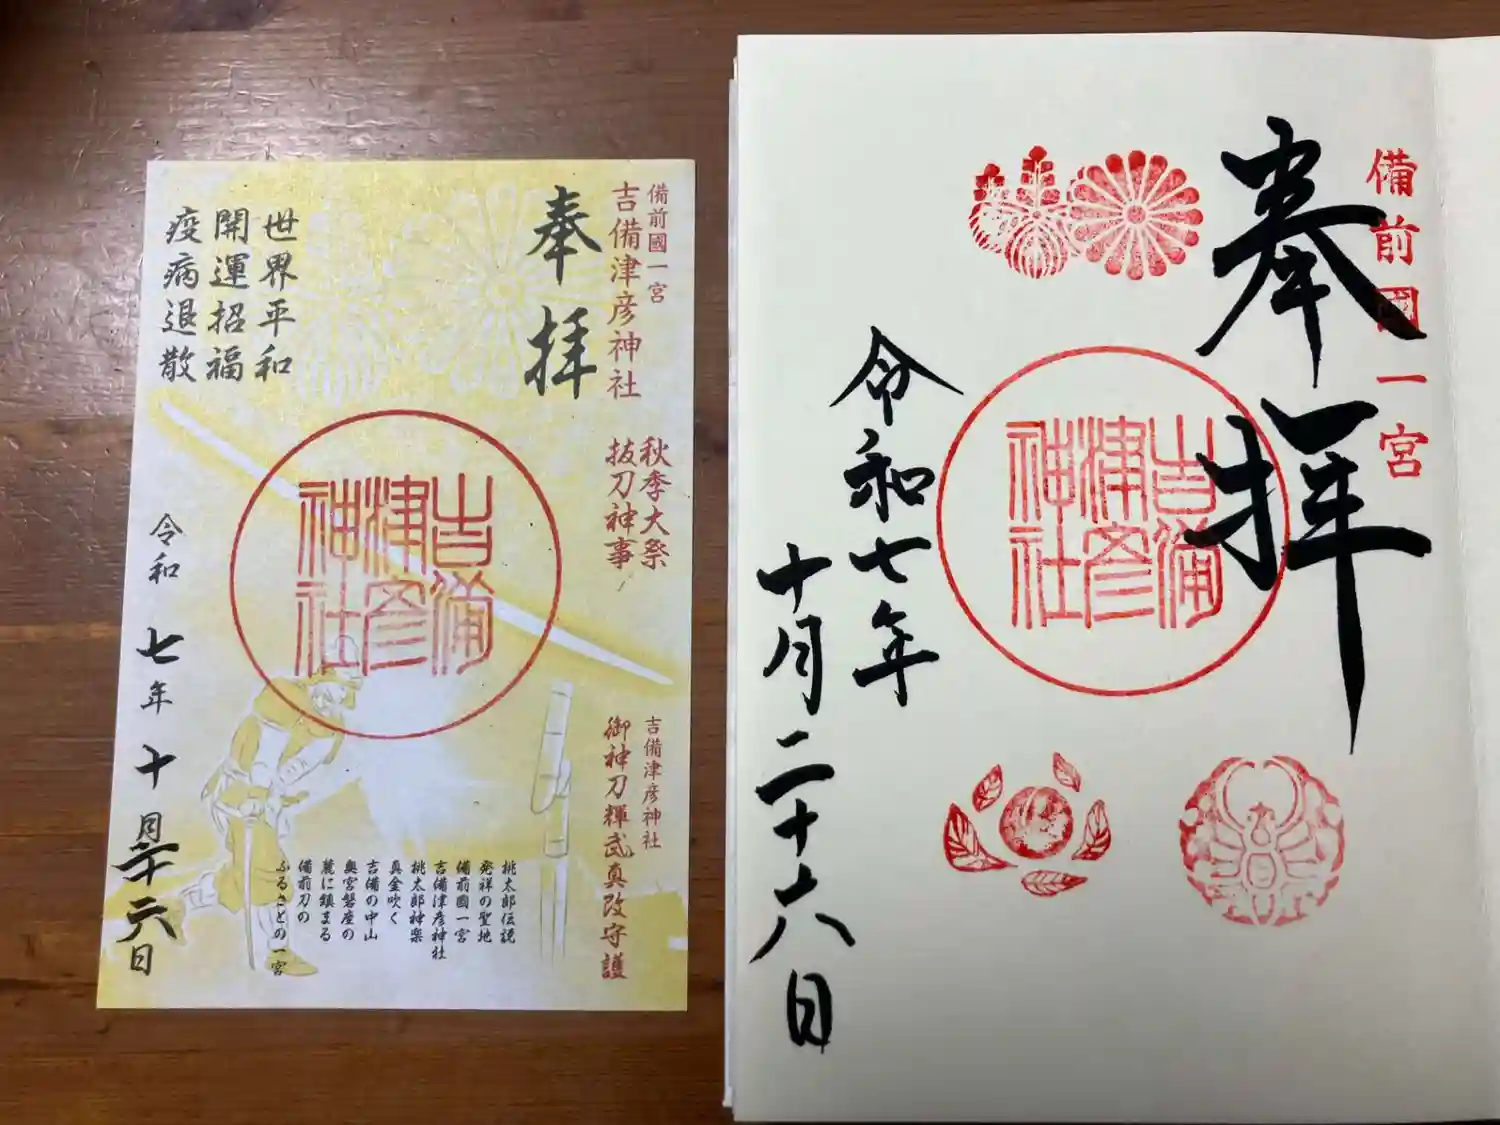 備前國一宮
吉備津彦神社
奉拝
秋季大祭
抜刀神事
世界平和
開運招福
疫病退散
吉備津彦神社
令和七年十月二十六日
吉備津彦神社
御神刀輝武真改守護
桃太郎伝説
発祥の聖地
備前國一宮
吉備津彦神社
桃太郎神楽
真金吹く
吉備の中山
奥宮磐座の
麓に鎮まる
備前刀の
ふるさとの一宮
備前國一宮
奉拝
吉備津彦神社
令和七年
十月二十六日